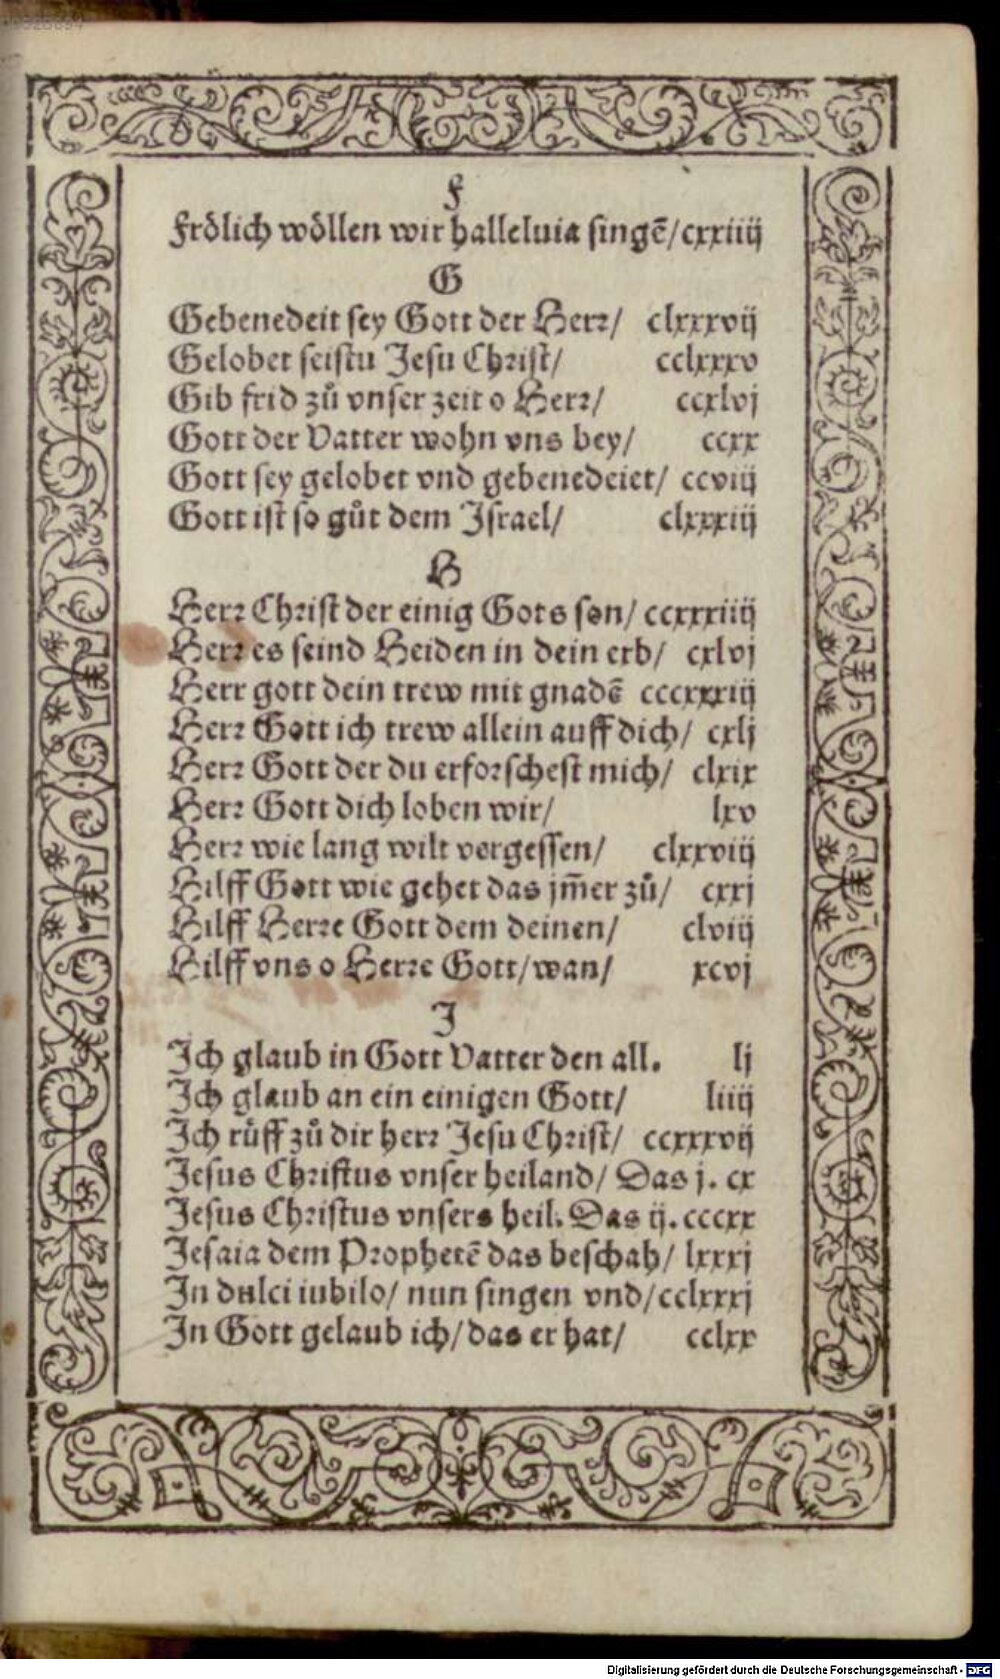 F
Frölich wöllen wir halleluia singē/cxxiiij
G
Gebenedeit sey Gott der Herr/ clxxxvij
Gelobet seistu Jesu Christ/ cclxxxv
Gib frid zů vnser zeit o Herr/ ccxlvj
Gott der Vatter wohn vns bey/ ccxx
Gott sey gelobet vnd gebenedeiet/ ccviij
Gott ist so gůt dem Israel/ clxxxiij
H
Herr Christ der einig Gots son/ ccxxxiiij
Herr es seind Heiden in dein erb/ cxlvj
Herr gott dein trew mit gnadē cccxxxiij
Herr Gott ich trew allein auff dich/ cxlj
Herr Gott der du erforschest mich/ clxix
Herr Gott dich loben wir/ lxv
Herr wie lang wilt vergessen/ clxxviij
Hilff Gott wie gehet das jm̄er zů/ cxxj
Hilff Herre Gott dem deinen/ clviij
Hilff vns o Herre Gott/wan/ xcvj
J
Ich glaub in Gott Vatter den all. lj
Ich glaub an ein einigen Gott/ liiij
Ich růff zů dir herr Jesu Christ/ ccxxxvij
Jesus Christus vnser heiland/ Das j. cx
Jesus Christus vnsers heil. Das ij. cccxx
Jesaia dem Prophetē das beschah/ lxxxj
In dulci iubilo/ nun singen vnd/cclxxxj
In Gott gelaub ich/das er hat/ cclxx
Digitalisierung gefördert durch die Deutsche Forschungsgemeinschaft - DFG